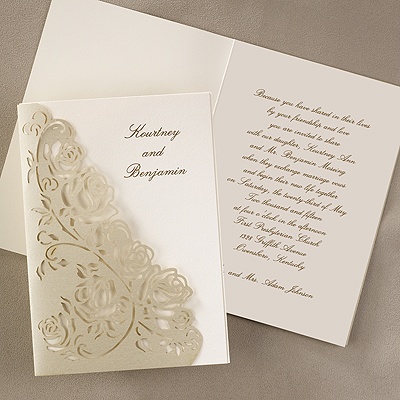 Kourtney
and
Benjamin
Because you have shared in their lives
by your friendship and love
you are invited to share
with our daughter, Kourtney Ann
and Mr. Benjamin Messing
when they exchange marriage vows
and begin their new life together
on Saturday, the twenty-third of May
Two thousand and fifteen
at four o'clock in the afternoon
First Presbyterian Church
1328 Griffith Avenue
Owensboro, Kentucky
and Mrs. Adam Johnson